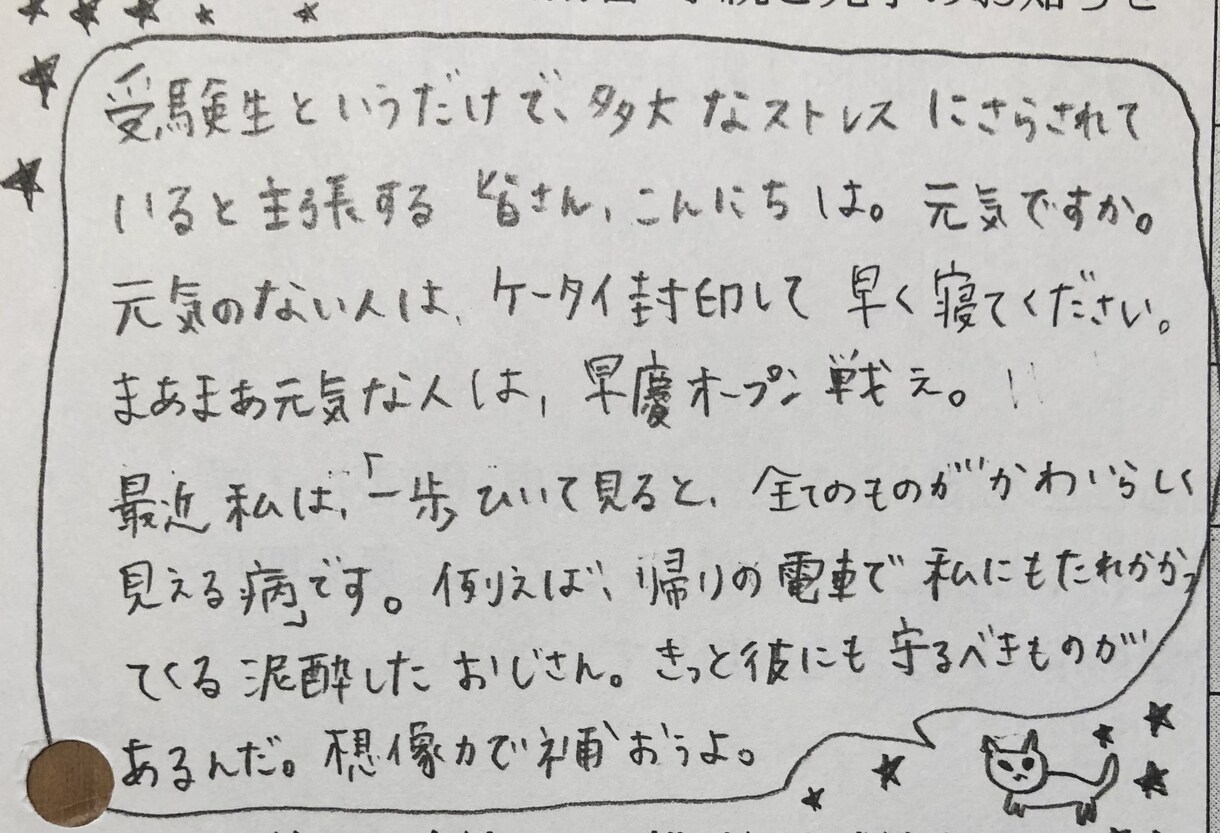 受験生というだけで、多大なストレスにさらされて
いると主張する皆さん、こんにちは。元気ですか。
元気のない人は、ケータイ封印して早く寝てください。
まあまあ元気な人は、早慶オープン戦え。
最近私は、「一歩ひいて見ると、全てのものがかわいらしく
見える病」です。例えば、帰りの電車で私にもたれかかっ
てくる泥酔したおじさん。きっと彼にも守るべきものが
あるんだ。想像力で補おうよ。